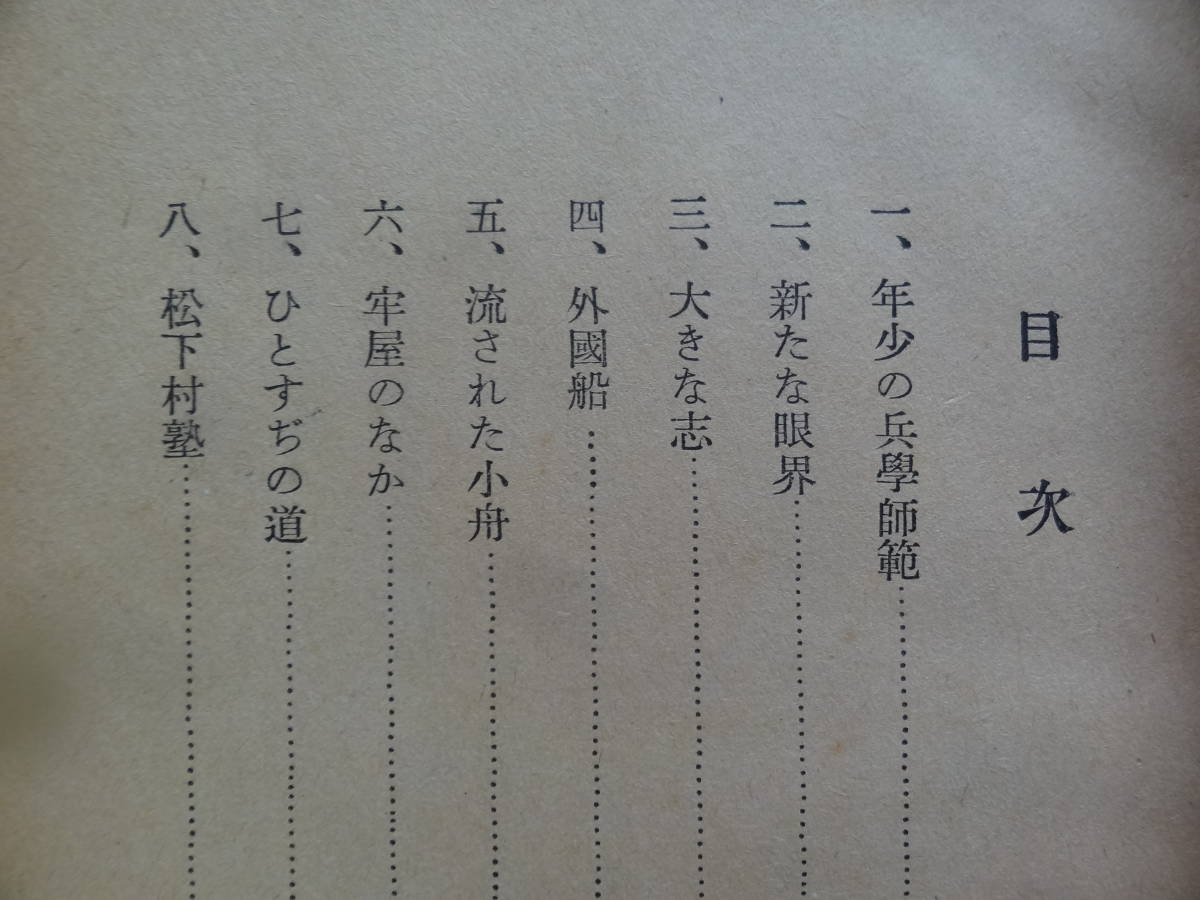 目次
一、年少の兵學師範
二、新たな眼界
三、大きな志
四、外國船
五、流された小舟
六、牢屋のなか
七、ひとすぢの道
八、松下村塾